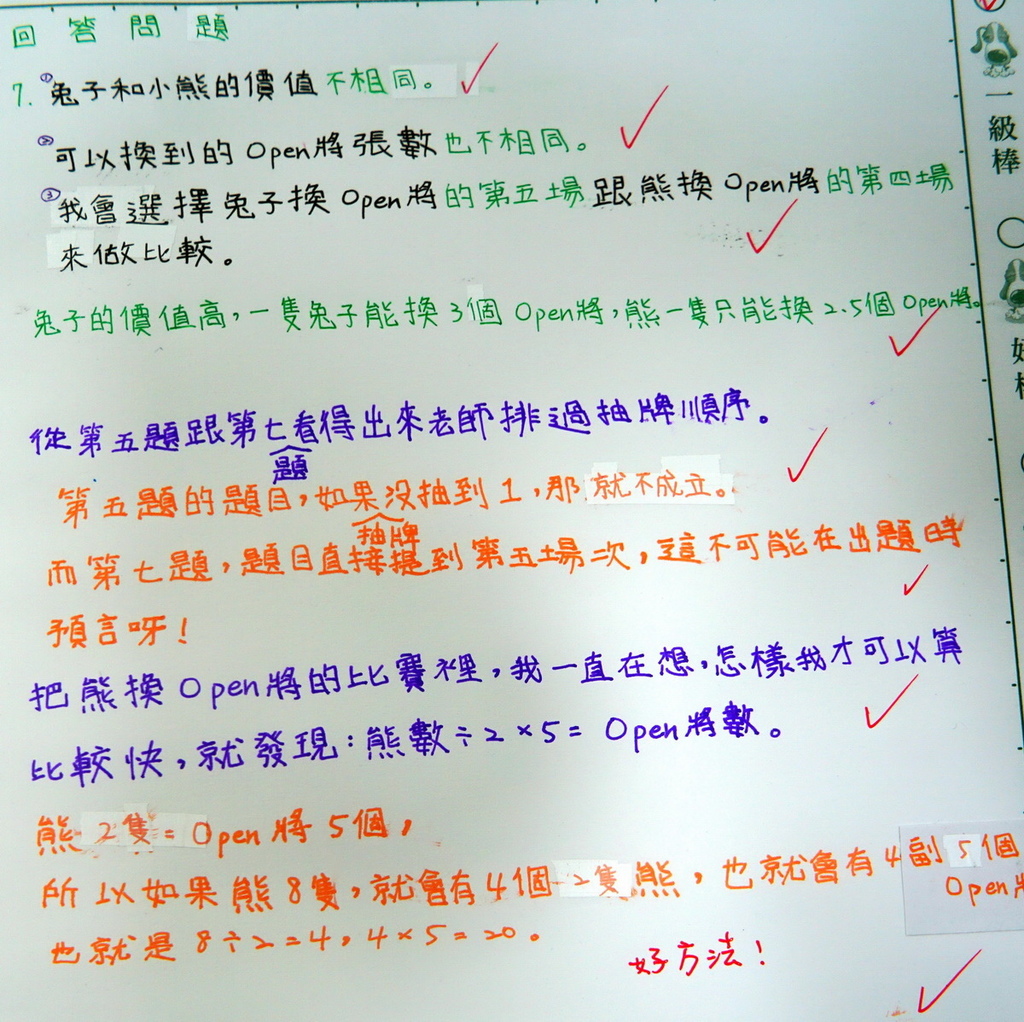 回答問題
7. ①兔子和小熊的價值不相同。
②可以換到的Open將張數也不相同。
③我會選擇兔子換Open將的第五場跟熊換Open將的第四場
來做比較。
兔子的價值高,一隻兔子能換3個Open將,熊一隻只能換2.5個Open將。
從第五題跟第七題看得出來老師排過抽牌順序。
第五題的題目,如果沒抽到1,那就不成立。
抽牌
而第七題,題目直接提到第五場次,這不可能在出題時
預言呀!
把熊換Open將的比賽裡,我一直在想,怎樣我才可以算
比較快,就發現:熊數÷2×5=Open將數。
熊2隻=Open將5個,
所以如果熊8隻,就會有4個2隻熊,也就會有4副5個
Open將
也就是8÷2=4,4×5=20。
好方法!
一級棒